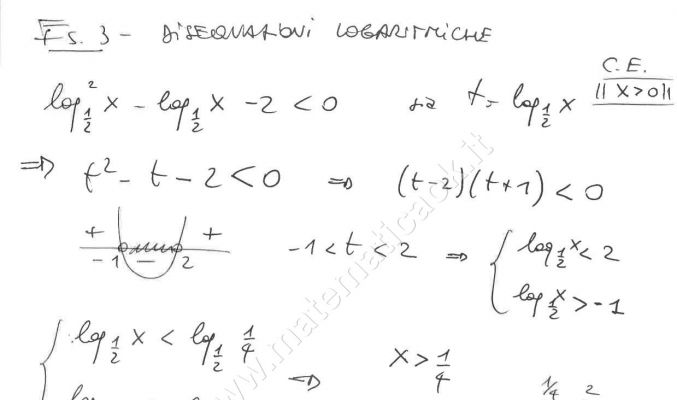 Es. 3 - DISEQUAZIONI LOGARITMICHE
C.E.
log²_{1/2} x - log_{1/2} x - 2 < 0 sia t = log_{1/2} x || x > 0 ||
=> t² - t - 2 < 0 => (t-2)(t+1) < 0
+ - + -1 2 -1 < t < 2 => { log_{1/2} x < 2
log_{1/2} x > -1
{ log_{1/2} x < log_{1/2} 1/4 x > 1/4
=> 1/4 2
www.matematicaok.it